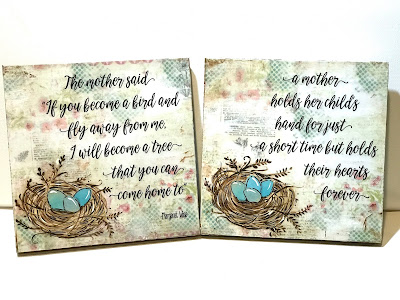 The mother said
"If you become a bird and
fly away from me,
I will become a tree
that you can
come home to"
a mother
holds her child's
hand for just
a short time but holds
their hearts
forever